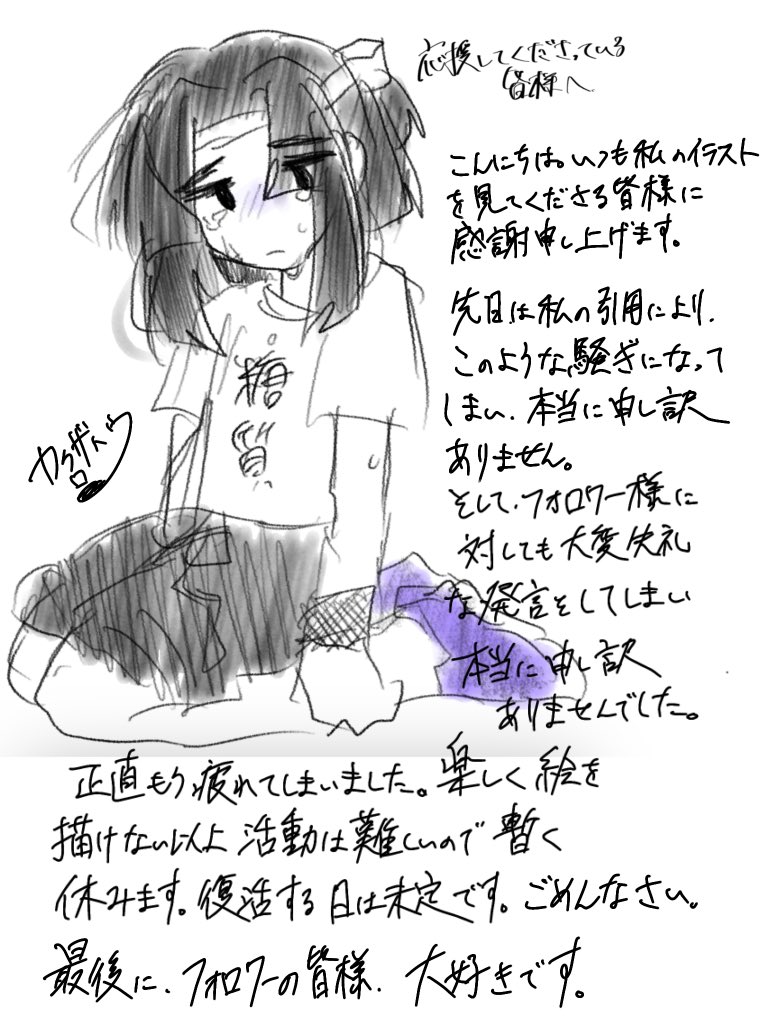 応援してくださっている
皆様へ
こんにちは。いつも私のイラスト
を見てくださる皆様に
感謝申し上げます。
先日は私の引用により、
このような騒ぎになって
しまい、本当に申し訳
ありません。
そして、フォロワー様に
対しても大変失礼
な発言をしてしまい
本当に申し訳
ありませんでした。
糖質
正直もう疲れてしまいました。楽しく絵を
描けない以上活動は難しいので暫く
休みます。復活する日は未定です。ごめんなさい。
最後に、フォロワーの皆様、大好きです。